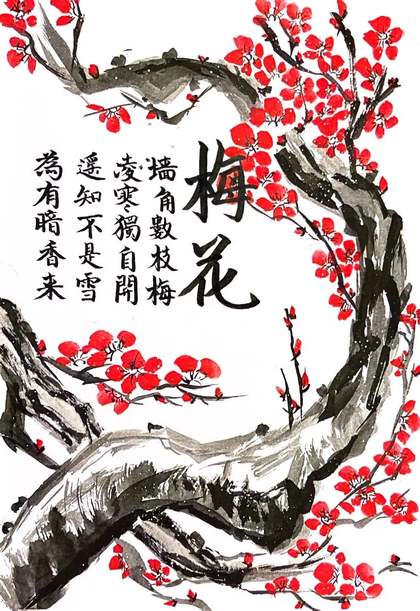 梅花
墙角數枝梅
凌寒獨自開
遥知不是雪
為有暗香来